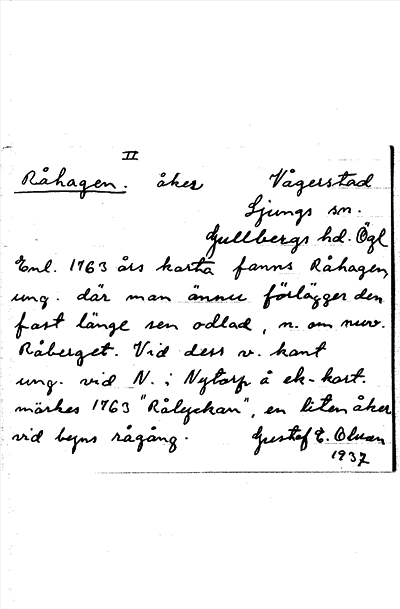 II
Råhagen. åker Vågerstad
Ljungs sn.
Gullbergs hd. Ögl
Enl. 1763 års karta fanns Råhagen,
ung. där man ännu förlägger den
fast länge sen odlad, n. om nuv.
Råberget. Vid dess v. kant
ung. vid N. i Nytorp å ek-kart.
märkes 1763 "Rålyckan", en liten åker
vid byns rågång. Gustaf E. Olsson
1937